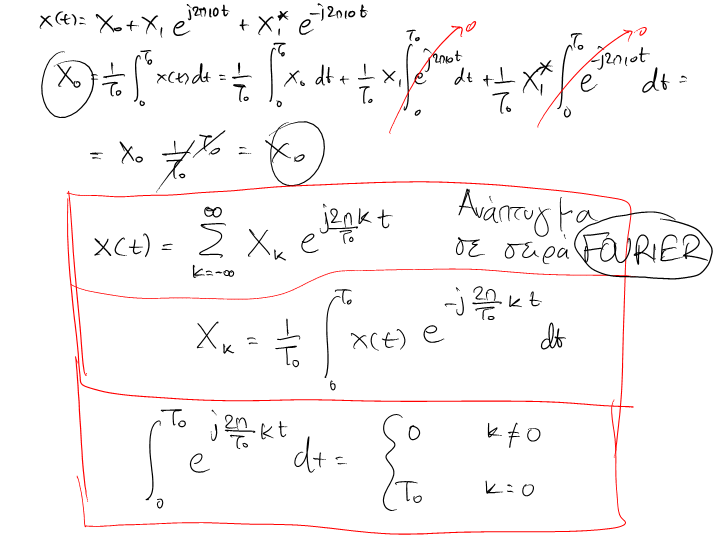 x(t) = X₀ + X₁ e^{j2π10t} + X₁* e^{-j2π10t}
X₀ = 1/T₀ ∫₀^{T₀} x(t) dt = 1/T₀ ∫₀^{T₀} X₀ dt + 1/T₀ X₁ ∫₀^{T₀} e^{j2π10t} dt → 0 + 1/T₀ X₁* ∫₀^{T₀} e^{-j2π10t} dt → 0 =
= X₀ 1/T₀ T₀ = X₀
x(t) = ∑_{k=-∞}^{∞} X_k e^{j 2π/T₀ k t} Ανάπτυγμα
σε σειρά FOURIER
X_k = 1/T₀ ∫₀^{T₀} x(t) e^{-j 2π/T₀ k t} dt
∫₀^{T₀} e^{j 2π/T₀ k t} dt = { 0 k ≠ 0
T₀ k = 0